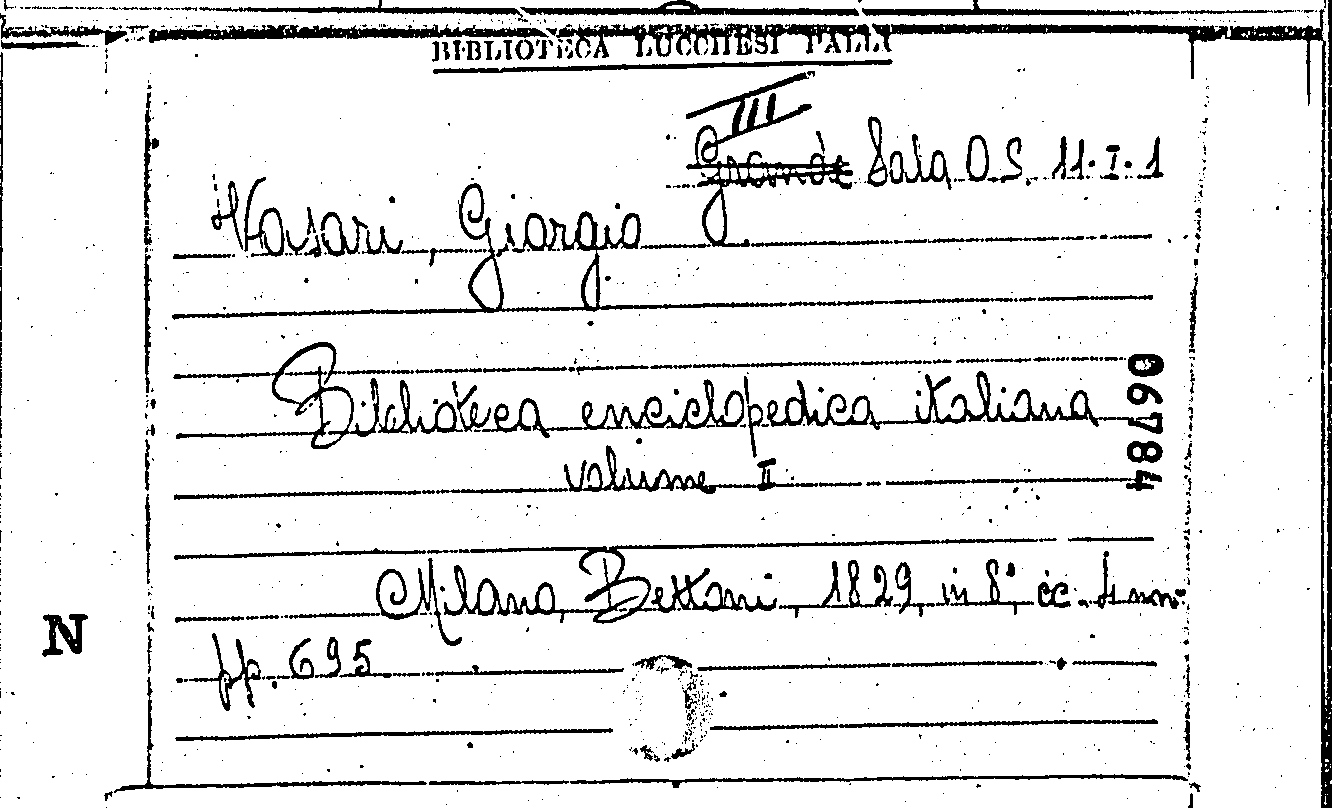 BIBLIOTECA LUCCHESI PALLI
III
Grande Sala O.S. 11.I.1
Vasari, Giorgio
Biblioteca enciclopedica italiana
volume II
06784
Milano, Bettoni, 1829, in 8°, cc. 4 nn.
pp. 695
N